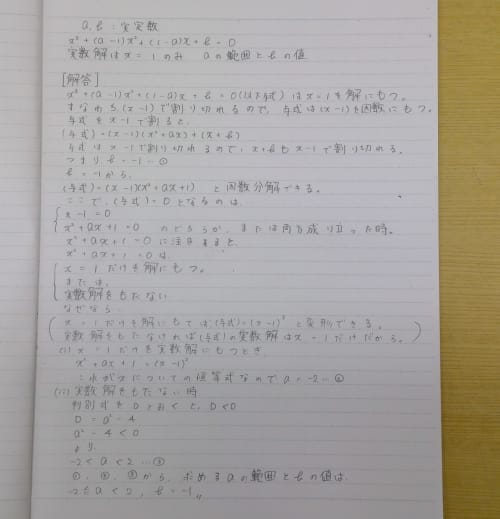 a, b : 実定数
x³+(a-1)x²+(1-a)x+b=0
実数解はx=1のみ aの範囲とbの値
[解答]
x³+(a-1)x²+(1-a)x+b=0(以下与式)はx=1を解にもつ。
すなわち(x-1)で割り切れるので、与式は(x-1)を因数にもつ。
与式をx-1で割ると、
(与式)=(x-1)(x²+ax)+(x+b)
与式はx-1で割り切れるので、x+bもx-1で割り切れる。
つまり、b=-1…①
b=-1から、
(与式)=(x-1)(x²+ax+1) と因数分解できる。
ここで、(与式)=0となるのは、
x-1=0
x²+ax+1=0 のどちらか、または両方成り立った時。
x²+ax+1=0に注目すると、
x²+ax+1=0は、
x=1だけを解にもつ。
または、
実数解をもたない
なぜなら
x=1だけを解にもてば(与式)=(x-1)³と変形できる。
実数解をもたなければ(与式)の実数解はx=1だけだから。
(i) x=1だけを実数解にもつとき
x²+ax+1=(x-1)²
これがxについての恒等式なのでa=-2…②
(ii)実数解をもたない時
判別式をDとおくと、D<0
D=a²-4
a²-4<0
より
-2<a<2…③
①,②,③から、求めるaの範囲とbの値は
-2≦a<2, b=-1,,